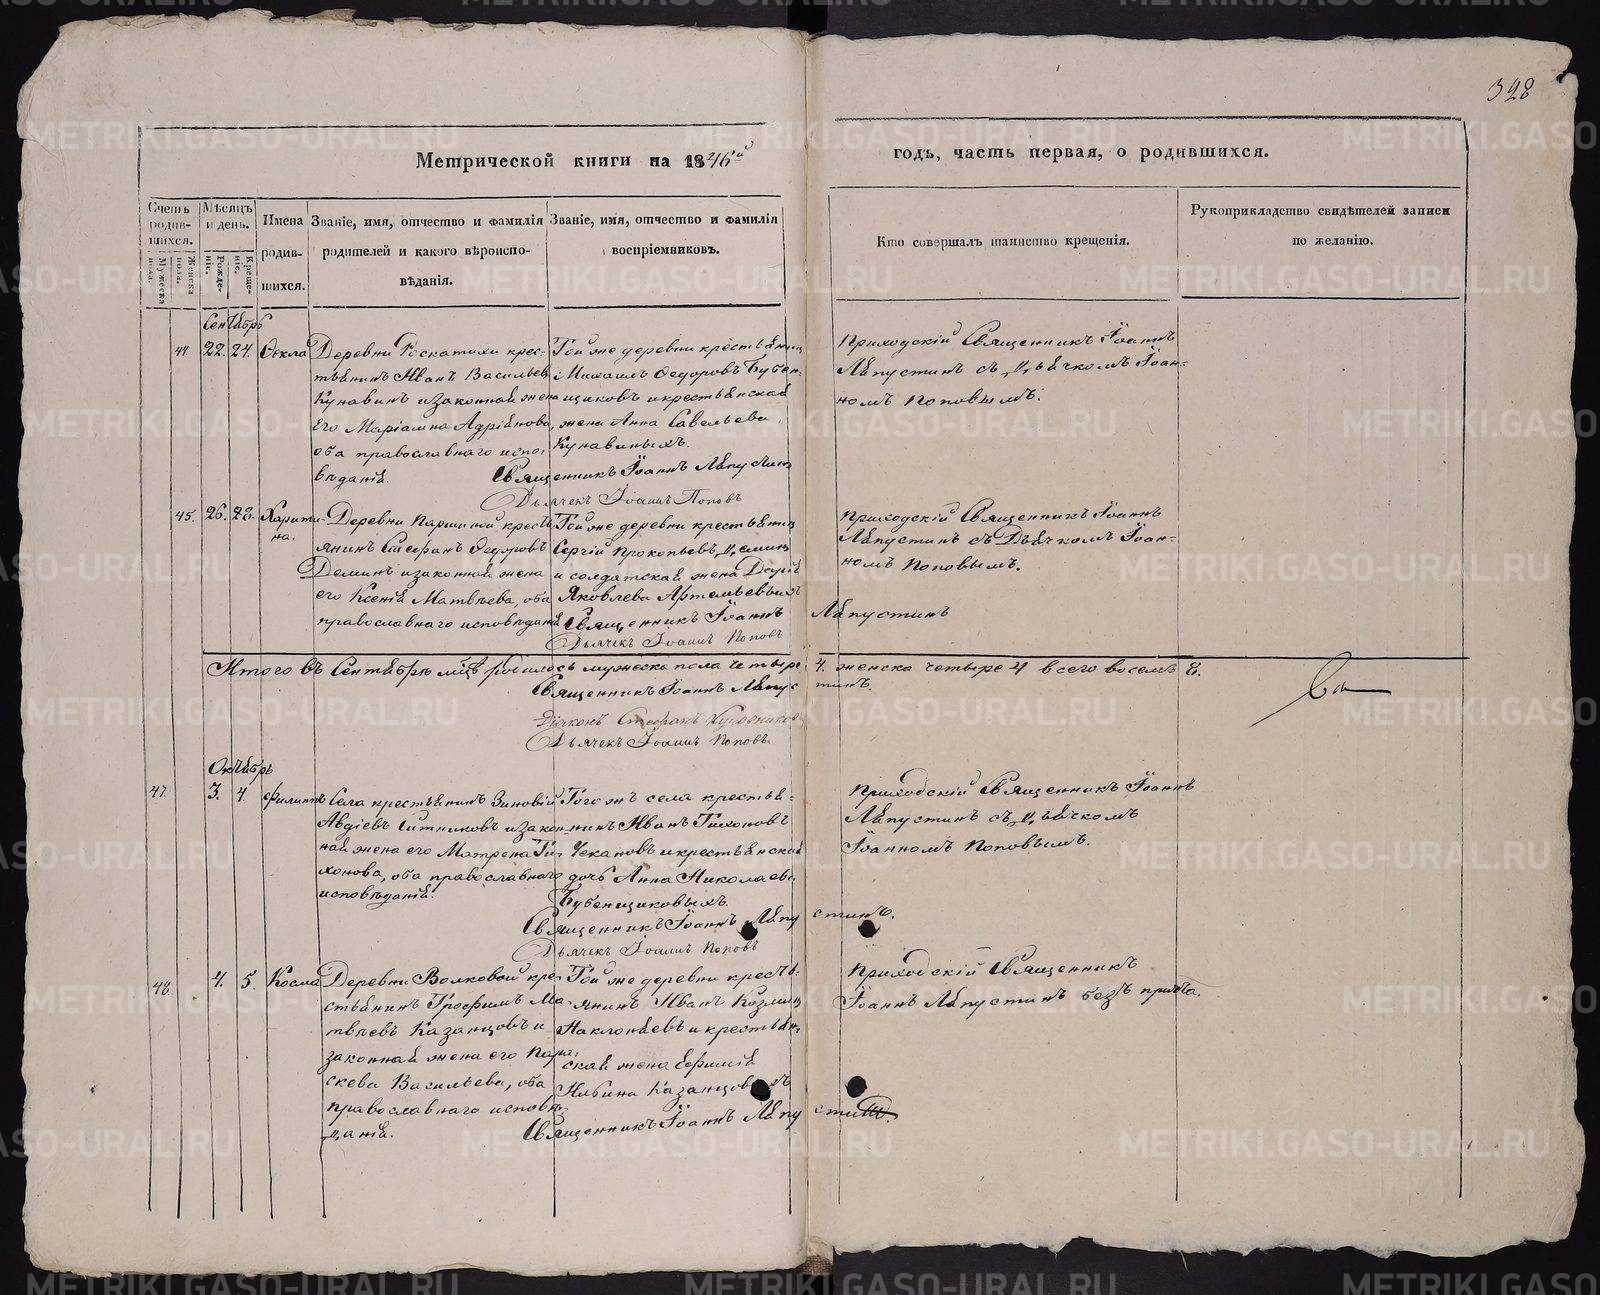 328
Метрической книги на 1846й годъ, часть первая, о родившихся.
Счетъ родив-шихся.
Мужеска пола.
Женска пола.
Мѣсяцъ и день.
Рожде-нiе.
Креще-нiе.
Имена родив-шихся.
Званiе, имя, отчество и фамилiя
родителей и какого вѣроиспо-
вѣданiя.
Званiе, имя, отчество и фамилiя
воспрiемниковъ.
Кто совершалъ таинство крещенiя.
Рукоприкладство свидѣтелей записи
по желанiю.
Сентябрь
44. 22. 24. Ѳекла
Деревни Роскатихи крес-
тьянинъ Иванъ Васильевъ
Кунавинъ и законная жена
его Марiамна Адрiянова,
оба православнаго испо-
вѣданiя.
Той же деревни крестьянинъ
Михаилъ Ѳедоровъ Бубен-
щиковъ и крестьянская
жена Анна Савельева
Кунавиныхъ.
Священникъ Iоаннъ Ляпустинъ
Дьячекъ Iоаннъ Поповъ
Приходскiй Священникъ Iоаннъ
Ляпустинъ съ дьячкомъ Iоан-
номъ Поповымъ.
45. 26. 28. Харити-
на.
Деревни Паршиной кресть-
янинъ Стефанъ Ѳедоровъ
Деминъ и законная жена
его Ксенiя Матвѣева, оба
православнаго исповѣданiя
Той же деревни крестьянинъ
Сергiй Прокопьевъ Деминъ
и солдатская жена Дарiя
Яковлева Артемьевыхъ
Священникъ Iоаннъ Ляпустинъ
Дьячекъ Iоаннъ Поповъ
Приходскiй Священникъ Iоаннъ
Ляпустинъ съ Дьячкомъ Iоан-
номъ Поповымъ.
Итого въ Сентябрѣ мцѣ родилось мужеска пола четыре 4. женска четыре 4 всего восемь 8.
Священникъ Iоаннъ Ляпустинъ.
Дiяконъ Стефанъ
Дьячекъ Iоаннъ Поповъ
Октябрь
47. 3. 4. Филиппъ
Села крестьянинъ Зиновiй
Авдiевъ Ситниковъ и закон-
ная жена его Матрена Ти-
хонова, оба православнаго
исповѣданiя.
Того жъ села крестья-
нинъ Иванъ Тихоновъ
Чекановъ и крестьянская
дочь Анна Николаева
Бубенщиковыхъ.
Священникъ Iоаннъ Ляпустинъ.
Дьячекъ Iоаннъ Поповъ
Приходскiй Священникъ Iоаннъ
Ляпустинъ съ дьячкомъ
Iоанномъ Поповымъ.
48. 4. 5. Косма
Деревни Волковой кре-
стьянинъ Трофимъ Ма-
твѣевъ Казанцовъ и
законная жена его Пара-
скева Васильева, оба
православнаго исповѣ-
данiя.
Той же деревни кресть-
янинъ Иванъ Козминъ
Наклоняевъ и крестьян-
ская жена Ефимiя
Казанцовыхъ
Священникъ Iоаннъ Ляпустинъ.
Приходскiй Священникъ
Iоаннъ Ляпустинъ безъ причта.